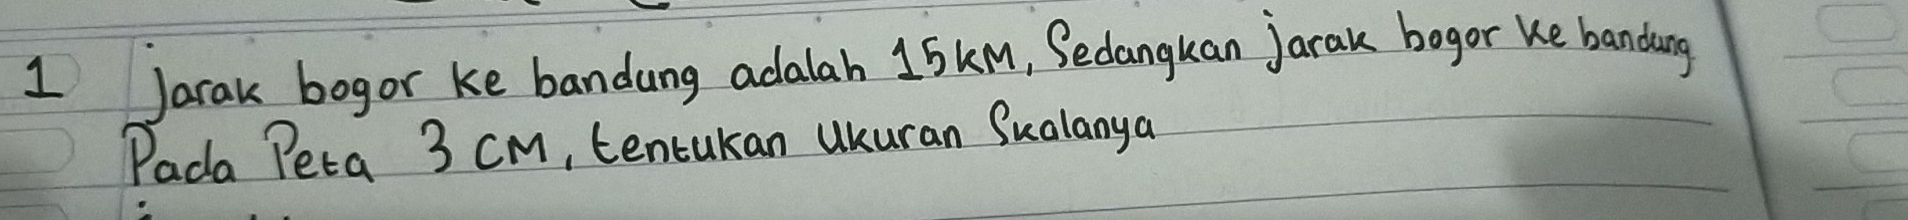 1 jarak bogor ke bandung adalah 15 KM, Sedangkan jarak bogor ke bandung
Pada Peta 3 CM, tentukan Ukuran Skalanya